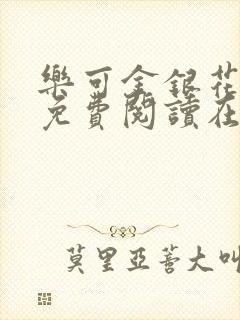 樂可金銀花
免費閱讀在
莫里亞蒼大叫